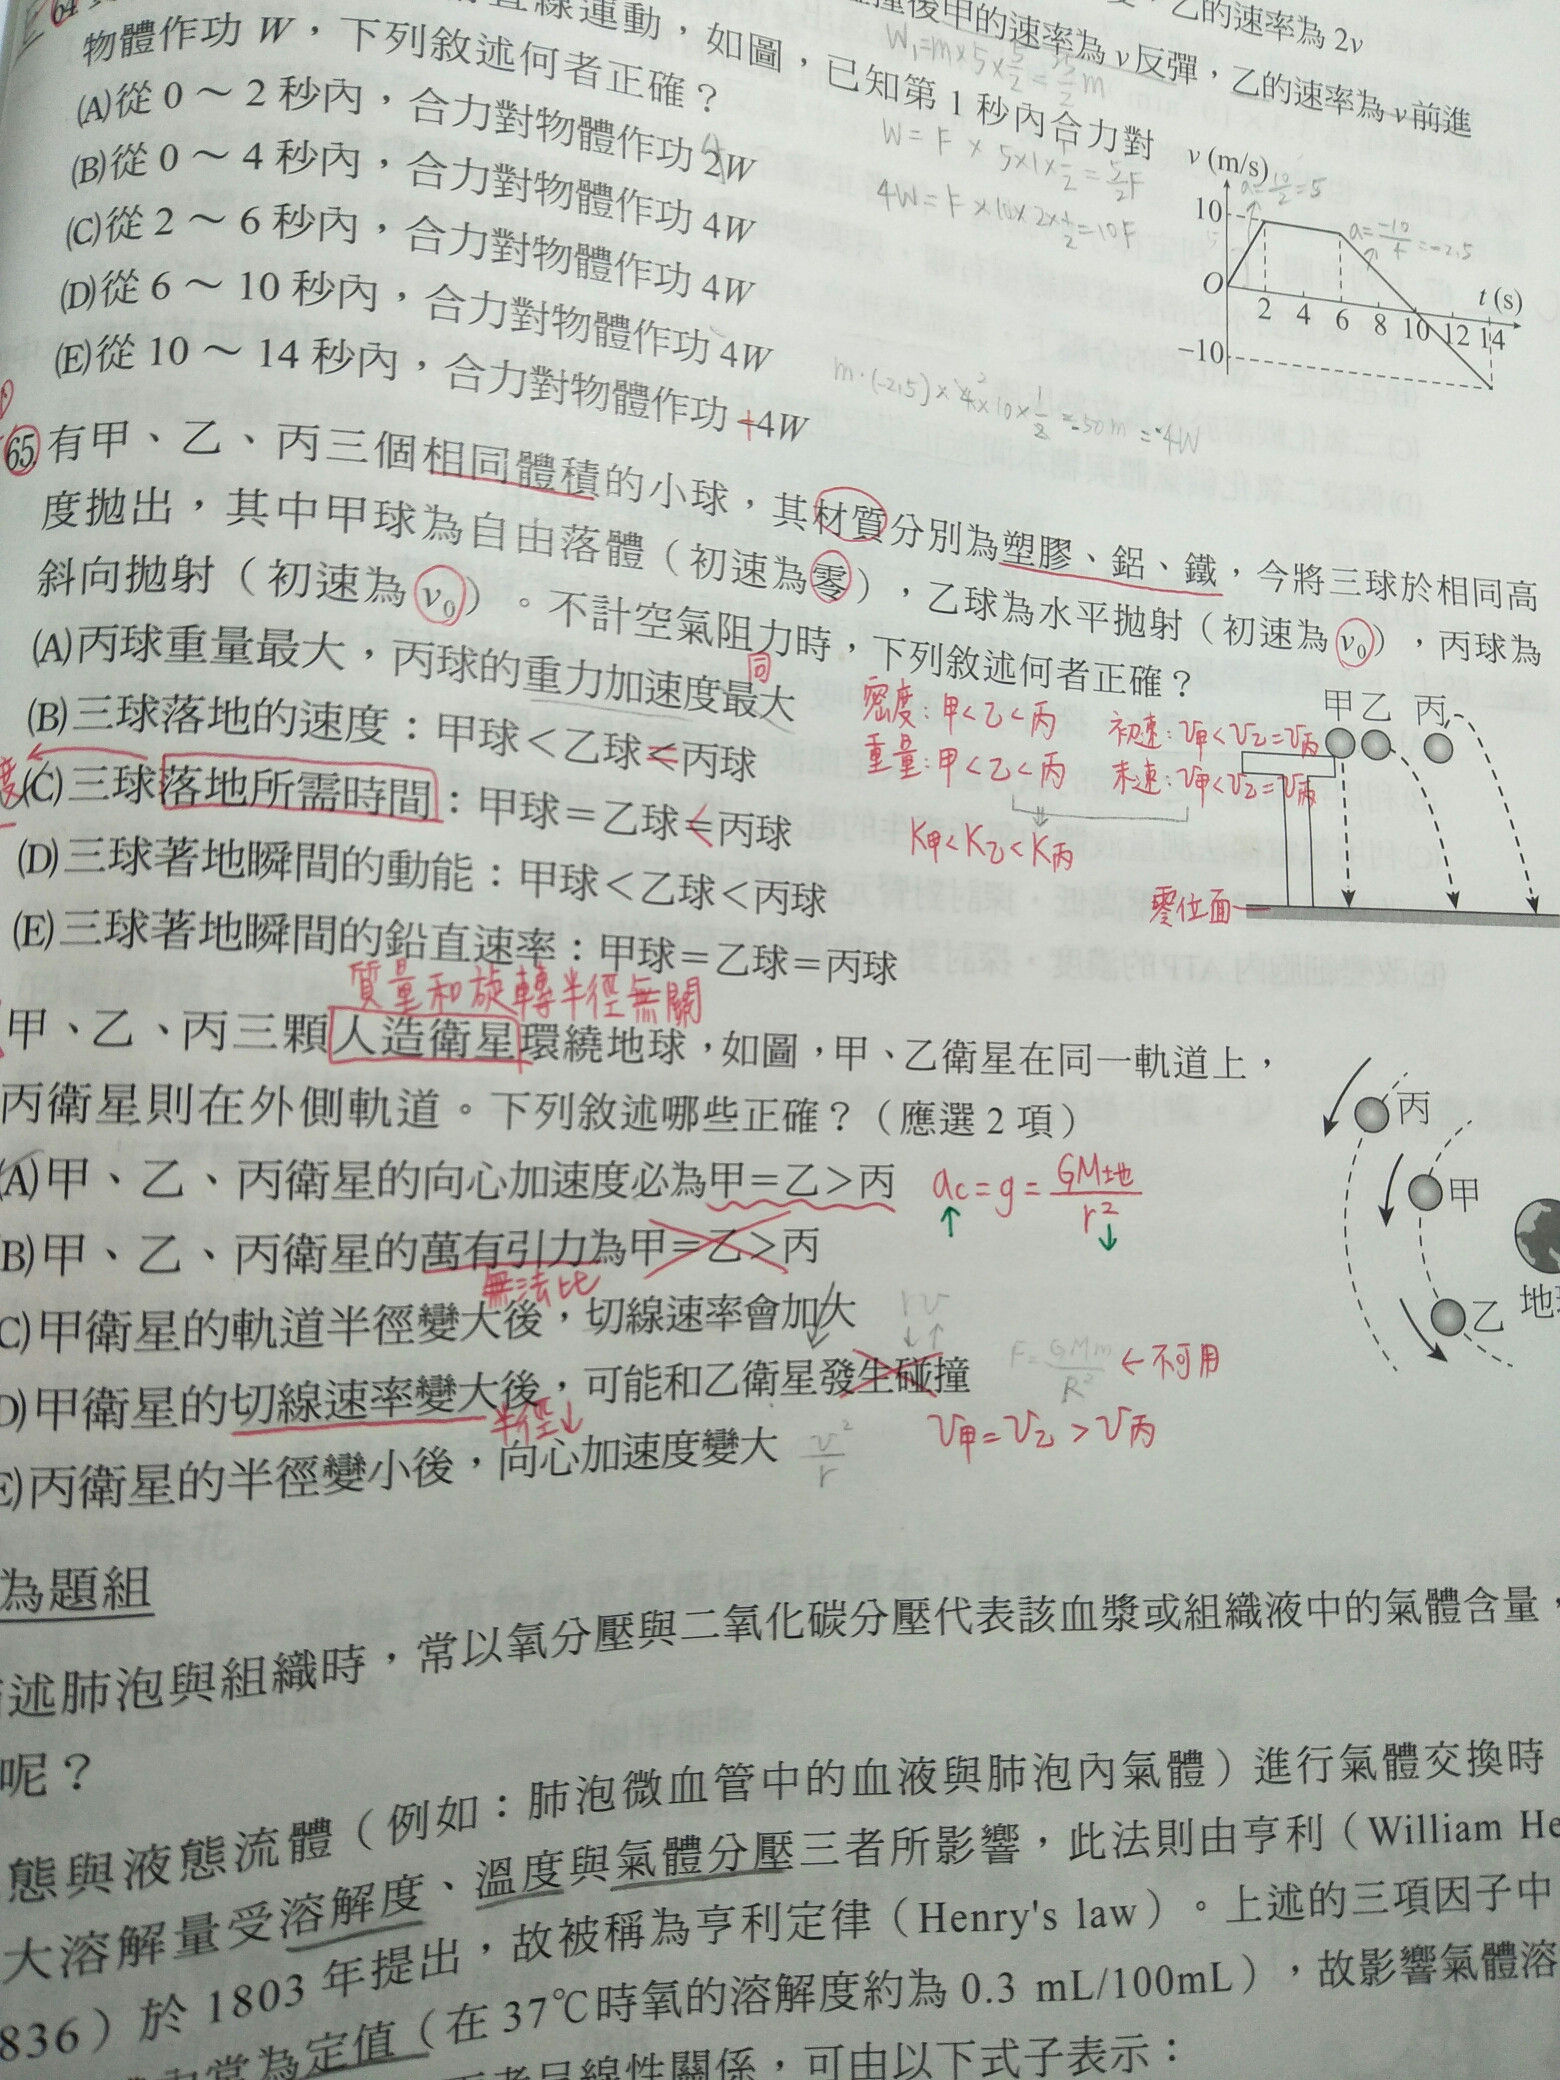 ，乙的速率為 2v
撞後甲的速率為 v 反彈，乙的速率為 v 前進
64
直線運動，如圖，已知第 1 秒內合力對
物體作功 W，下列敘述何者正確？
W₁=m×5×5/2=25/2 m
(A)從 0～2 秒內，合力對物體作功 2W
4
W = F × 5×1×1/2 = 5/2F
(B)從 0～4 秒內，合力對物體作功 4W
4W = F×10×2×1/2=10F
(C)從 2～6 秒內，合力對物體作功 4W
(D)從 6～10 秒內，合力對物體作功 4W
(E)從 10～14 秒內，合力對物體作功 4W
m·(-2.5)×4×10×1/2=-50m=-4W
v (m/s)
a=10/2=5
10
a=-10/4=-2.5
O
2 4 6 8 10 12 14
t (s)
-10
65. 有甲、乙、丙三個相同體積的小球，其材質分別為塑膠、鋁、鐵，今將三球於相同高
度拋出，其中甲球為自由落體（初速為零），乙球為水平拋射（初速為 v₀），丙球為
斜向拋射（初速為 v₀）。不計空氣阻力時，下列敘述何者正確？
(A)丙球重量最大，丙球的重力加速度最大
同
(B)三球落地的速度：甲球＜乙球＜丙球
=
(C)三球落地所需時間：甲球＝乙球＝丙球
<
(D)三球著地瞬間的動能：甲球＜乙球＜丙球
(E)三球著地瞬間的鉛直速率：甲球＝乙球＝丙球
密度：甲<乙<丙
重量：甲<乙<丙
初速：v甲<v乙=v丙
末速：v甲<v乙=v丙
K甲<K乙<K丙
甲 乙 丙
零位面
質量和旋轉半徑無關
甲、乙、丙三顆人造衛星環繞地球，如圖，甲、乙衛星在同一軌道上，
丙衛星則在外側軌道。下列敘述哪些正確？（應選 2 項）
(A)甲、乙、丙衛星的向心加速度必為甲＝乙＞丙
ac=g=GM地/r²
↑ ↓
(B)甲、乙、丙衛星的萬有引力為甲＝乙＞丙
無法比
(C)甲衛星的軌道半徑變大後，切線速率會加大
r v
↓ ↑
(D)甲衛星的切線速率變大後，可能和乙衛星發生碰撞
半徑↓
F=GMm/R² ←不可用
v甲=v乙>v丙
(E)丙衛星的半徑變小後，向心加速度變大
v²/r
丙
甲
乙
地
為題組
述肺泡與組織時，常以氧分壓與二氧化碳分壓代表該血漿或組織液中的氣體含量，
呢？
態與液態流體（例如：肺泡微血管中的血液與肺泡內氣體）進行氣體交換時
大溶解量受溶解度、溫度與氣體分壓三者所影響，此法則由亨利（William He
836）於 1803 年提出，故被稱為亨利定律（Henry's law）。上述的三項因子中
常為定值（在 37℃時氧的溶解度約為 0.3 mL/100mL），故影響氣體溶
呈線性關係，可由以下式子表示：